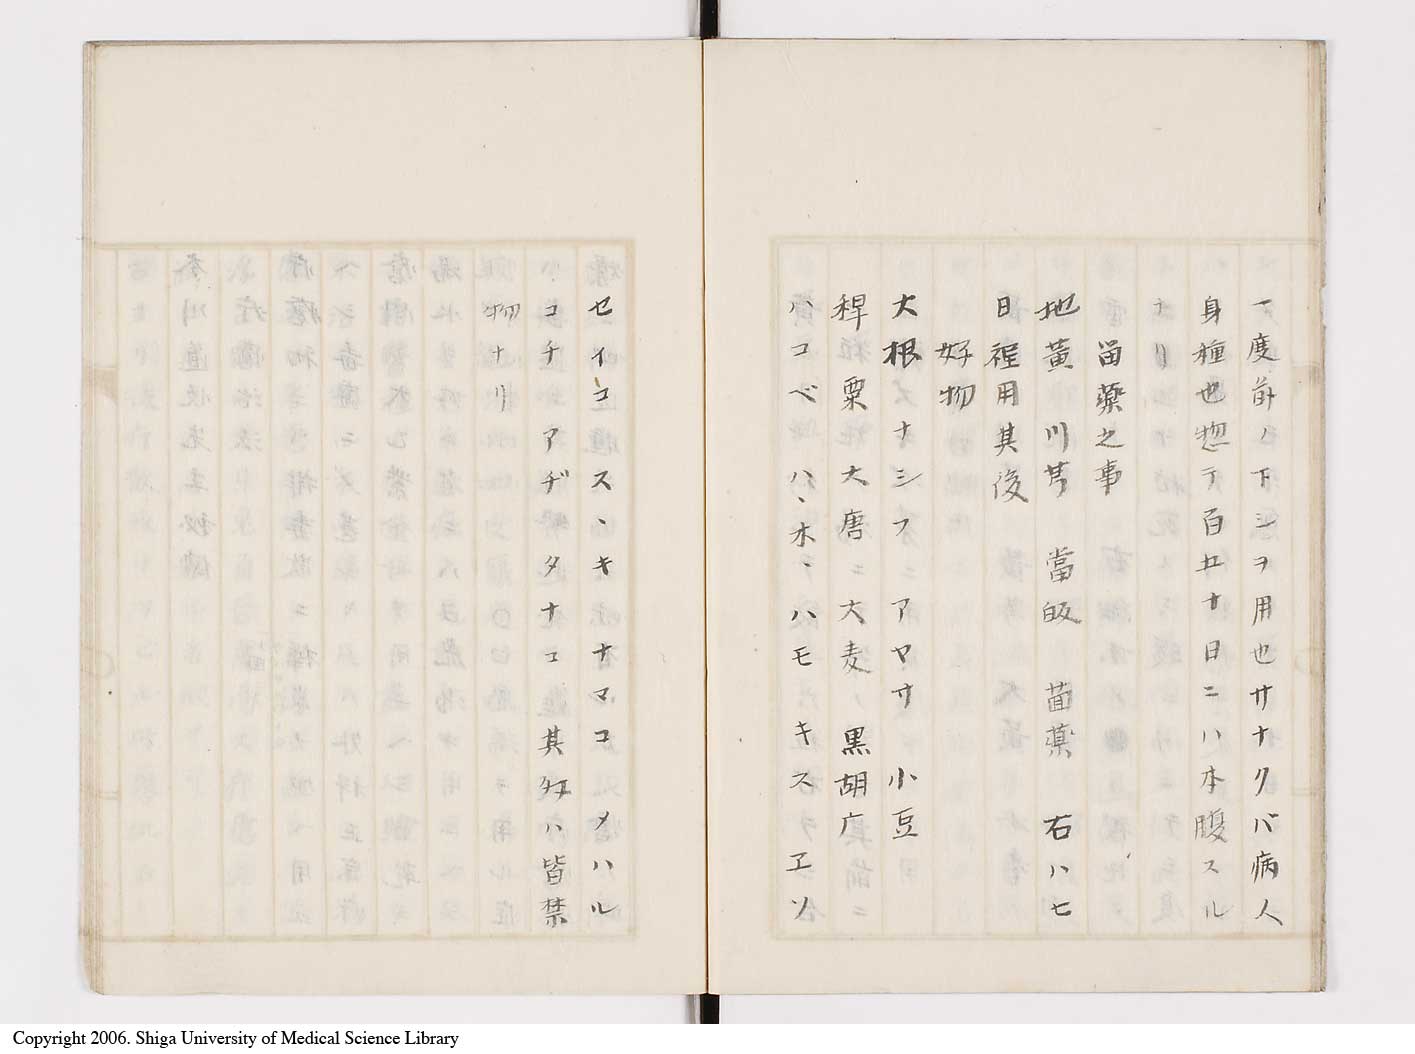 一度前ノ下シヲ用也サナクバ病人
身種也惣テ百廿日ニハ本腹スル
ナリ
留薬之事
地黄 川芎 當皈 茴薬 右ハ七
日程用其後
好物
大根 ナシ フ アヤサ 小豆
稗 粟 大唐ニ 大麦ノ 黒胡广
ハコベ ハヽホヽ ハモ キス エソ
セイコ スヽキ ナマコ メハル
コチ アヂ タナコ 其外ハ皆禁
物ナリ
Copyright 2006. Shiga University of Medical Science Library